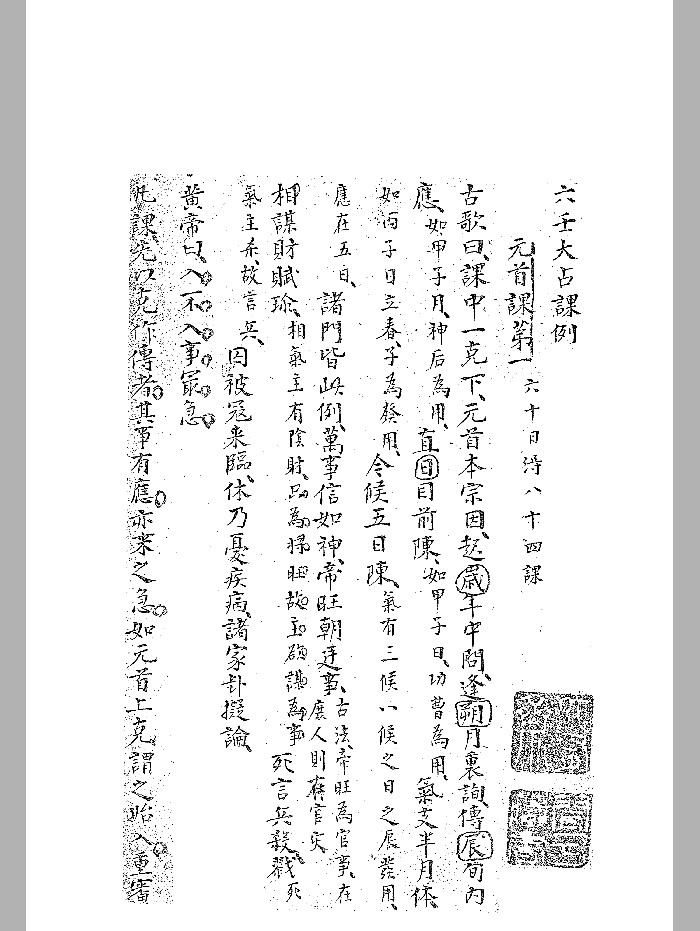 六壬大占課例
元首課第一 六十日得八十四課
古歌曰課中一克下元首本宗因起歲年中問逢朔月裏詢傳辰旬內
應如甲子月神后為用直日目前陳如甲子日功曹為用氣交半月体
如丙子日立春子為發用令候五日陳氣有三候八候之日之辰發用
應在五日諸門皆此例萬事信如神帝旺朝廷事古法帝旺為官事在庶人則有官災
相謀財賦瑜相氣主有陰財為旺故主謀為事死言兵殺戮死
氣主系故言兵囚被冦来臨休乃憂疾病諸家卦擬論
黃帝曰入不入事最急
凡課先以克作傳者其罪有應亦来之急如元首上克謂之始入重審